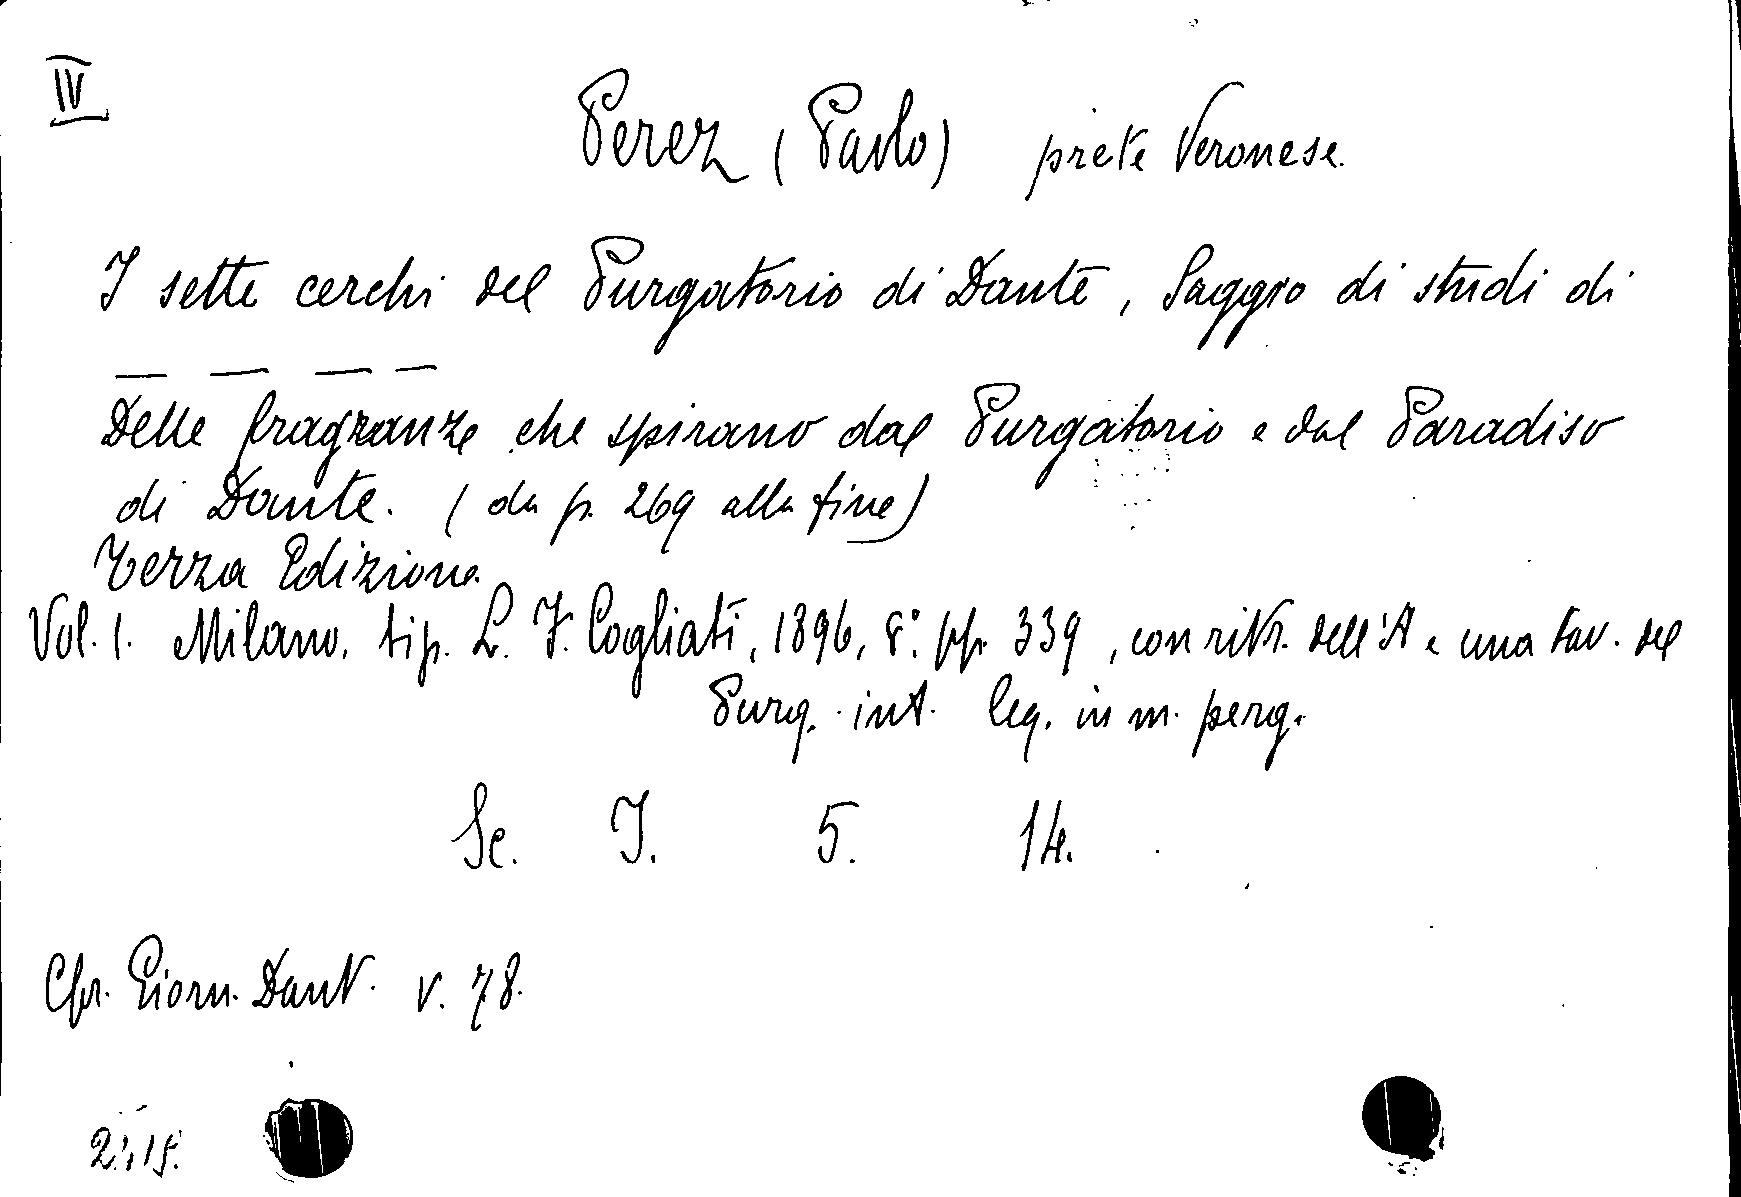 IV
Perez (Paolo) prete Veronese.
I sette cerchi del Purgatorio di Dante, Saggio di studi di
— — — —
Delle fragranze che spirano dal Purgatorio e dal Paradiso
di Dante. (da p. 269 alla fine)
Terza Edizione.
Vol. 1. Milano, tip. L. F. Cogliati, 1896, 8°. pp. 339, con ritr. dell'A e una tav. del
Purg. int. leg. in m. perg.
Sc. I. 5. 14.
Cfr. Giorn. Dant. v. 78.